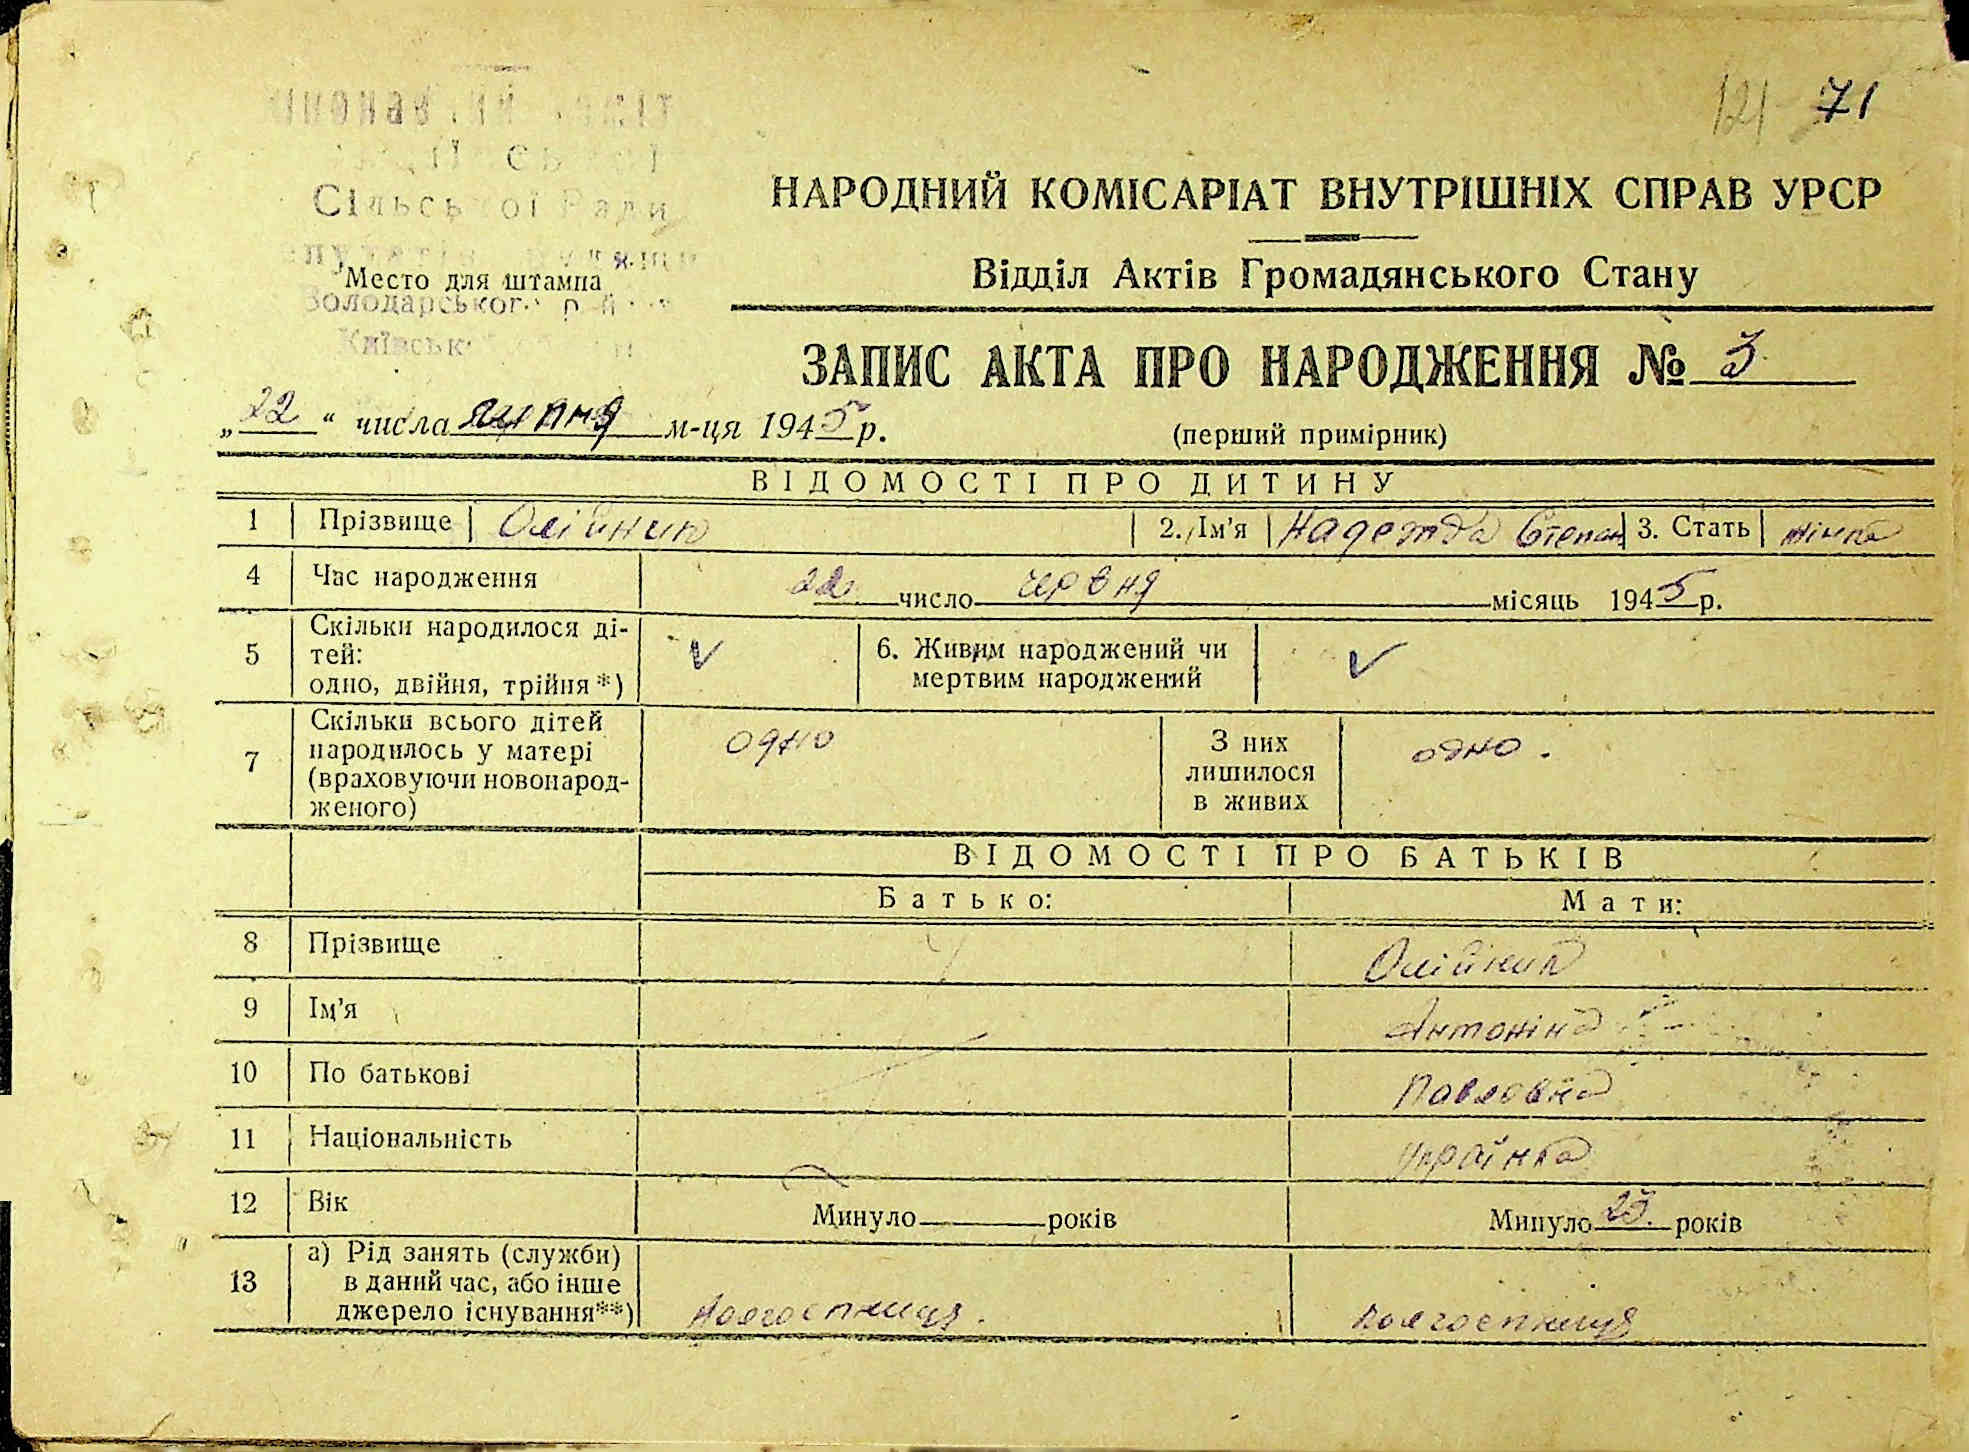 121 71
Сільської Ради
Место для штампа
Володарського
Київськ
НАРОДНИЙ КОМІСАРІАТ ВНУТРІШНІХ СПРАВ УРСР
Відділ Актів Громадянського Стану
ЗАПИС АКТА ПРО НАРОДЖЕННЯ № 3
„22“ числа липня м-ця 1945 р.
(перший примірник)
ВІДОМОСТІ ПРО ДИТИНУ
1 Прізвище Олійник 2. Ім'я Надежда Степан 3. Стать жінка
4 Час народження 22 число червня місяць 1945 р.
5 Скільки народилося ді-
тей:
одно, двійня, трійня*) ✓
6. Живим народжений чи
мертвим народжений ✓
7 Скільки всього дітей
народилось у матері
(враховуючи новонарод-
женого) одно
З них
лишилося
в живих одно.
ВІДОМОСТІ ПРО БАТЬКІВ
Батько: Мати:
8 Прізвище Олійник
9 Ім'я Антоніна
10 По батькові Павловна
11 Національність українка
12 Вік Минуло років Минуло 23 років
13 а) Рід занять (служби)
в даний час, або інше
джерело існування**) Колгоспниця. колгоспниця